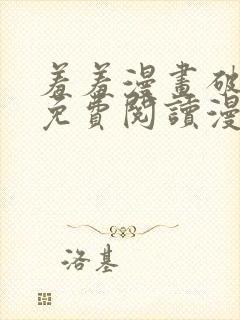 羞羞漫畫破
免費閱讀漫
洛基